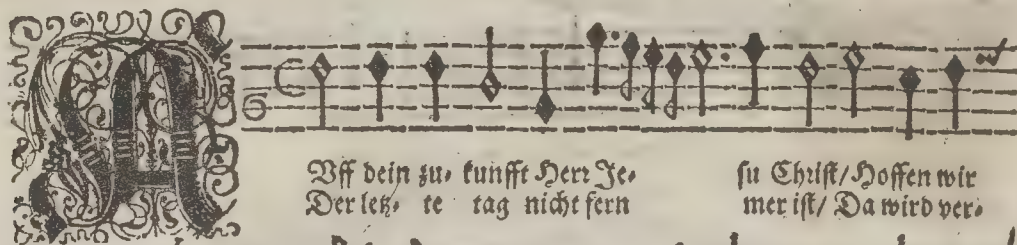 AVff dein zu- kunfft Herr Je- su Christ/ Hoffen wir
Der letz- te tag nicht fern mer ist/ Da wird ver-